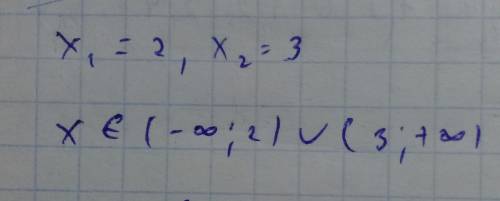 x₁ = 2, x₂ = 3
x ∈ (-∞; 2) ∪ (3; +∞)